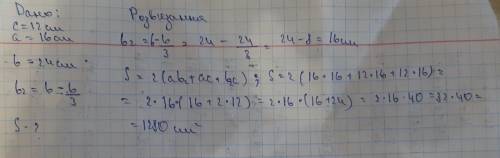 Дано:
c = 12 см
a = 16 см
b = 24 см
b₂ = b - b/3
S - ?
Розвʼязання
b₂ = b - b/3 = 24 - 24/3 = 24 - 8 = 16 см
S = 2(ab₂ + ac + b₂c); S = 2(16·16 + 12·16 + 12·16) =
= 2·16·(16 + 2·12) = 2·16·(16 + 24) = 2·16·40 = 32·40 =
= 1280 см²